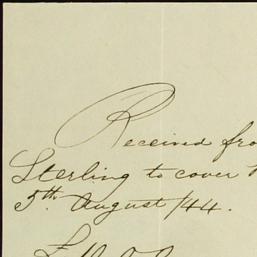 Received
Sterling to cover
5th August /44.